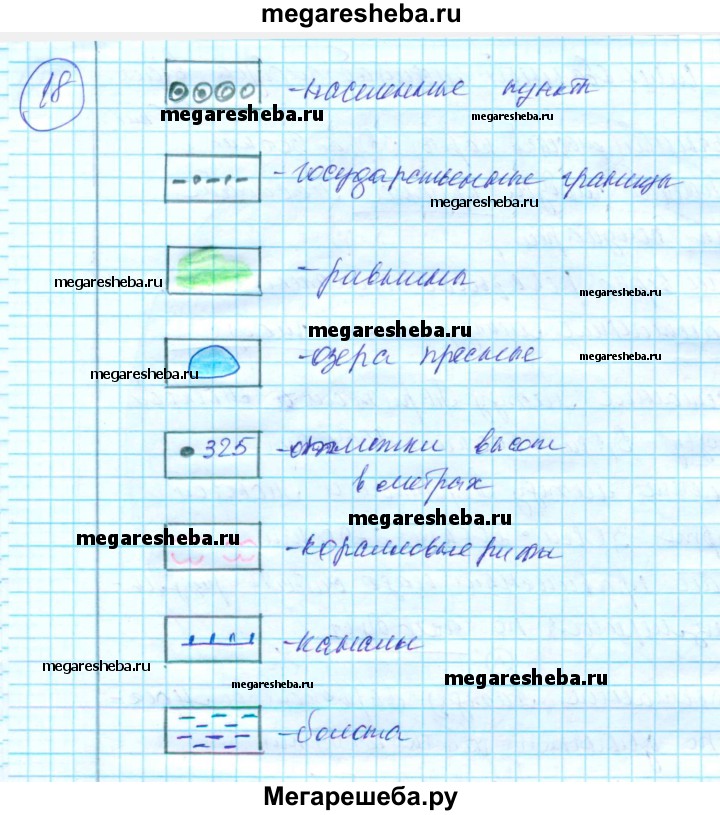 megaresheba.ru
18
- населенные пункт
megaresheba.ru
megaresheba.ru
- государственные границы
megaresheba.ru
- равнины
megaresheba.ru
megaresheba.ru
megaresheba.ru
- озера пресные
megaresheba.ru
megaresheba.ru
325 - отметки высот
в метрах
megaresheba.ru
megaresheba.ru
- коралловые рифы
- каналы
megaresheba.ru
megaresheba.ru
megaresheba.ru
- болота
Мегарешеба.ру